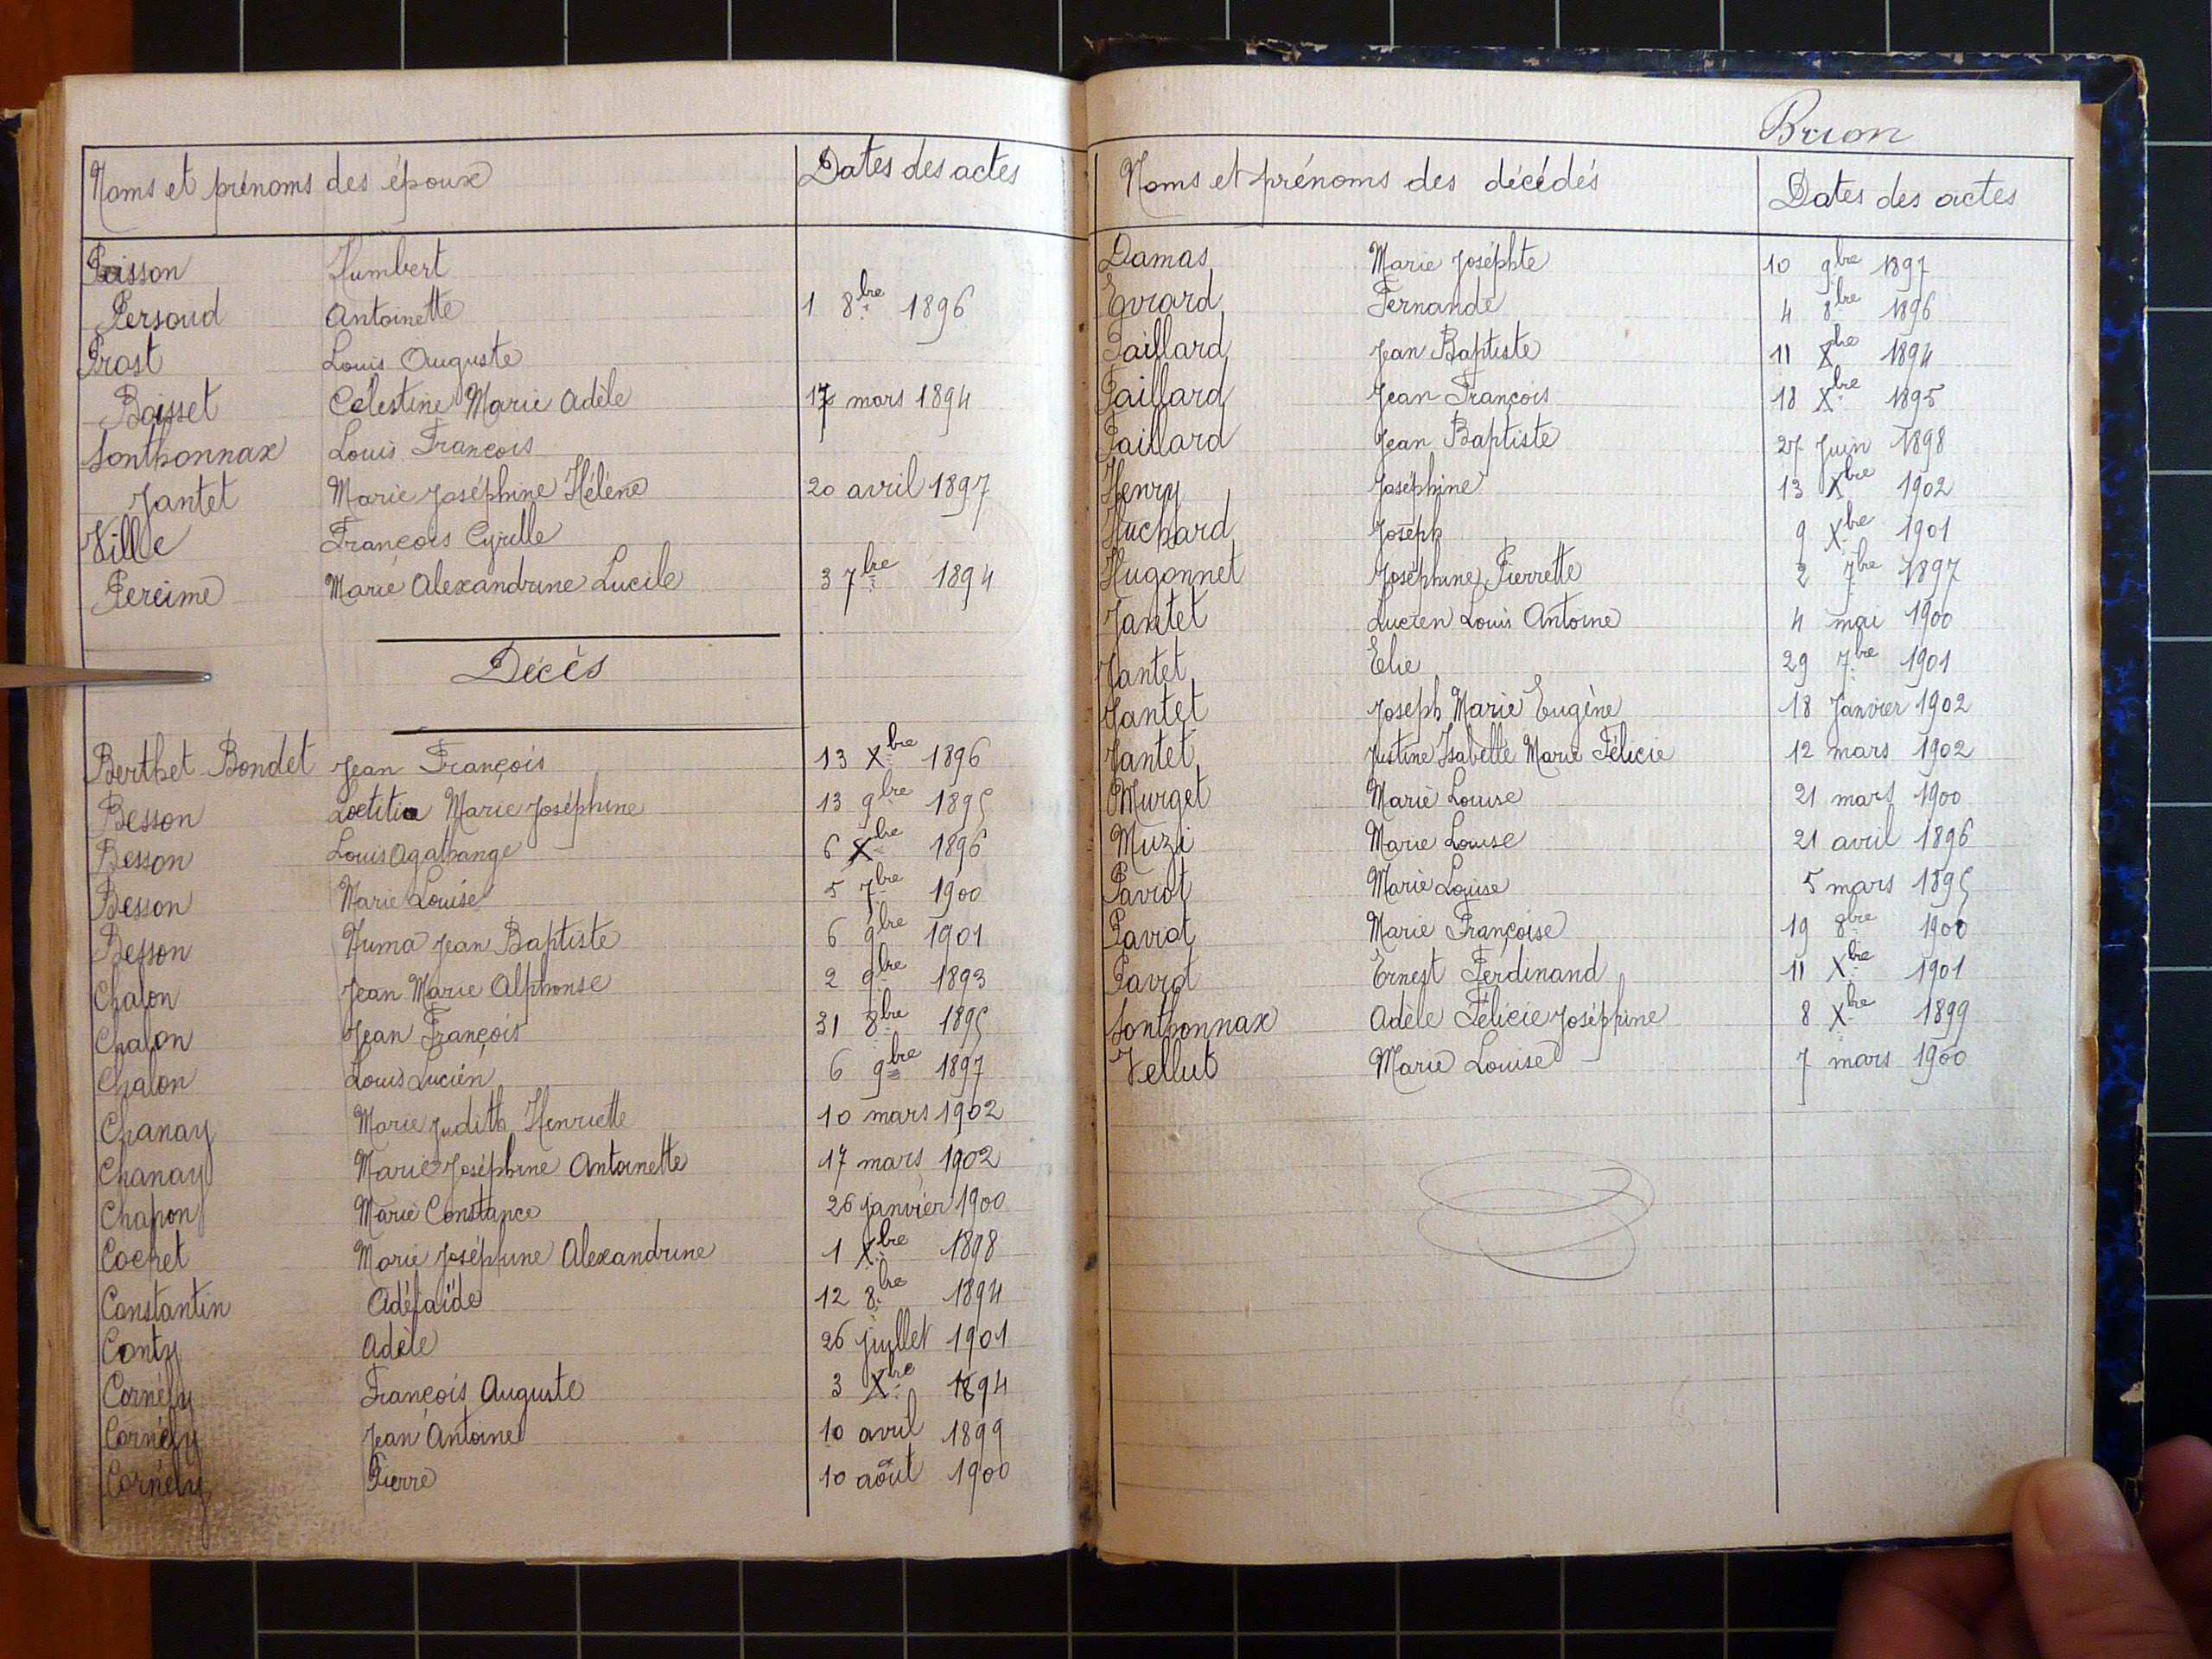 Noms et prénoms des époux Dates des actes
Poisson Humbert
Persoud Antoinette 1 8bre 1896
Prost Louis Auguste
Boisset Célestine Marie Adèle 17 mars 1894
Sonthonnax Louis François
Jantet Marie Joséphine Hélène 20 avril 1897
Ville François Cyrille
Pereime Marie Alexandrine Lucile 3 7bre 1894
Décès
Berthet Bondet Jean François 13 Xbre 1896
Besson Loetitia Marie Joséphine 13 9bre 1895
Besson Louis Agathange 6 Xbre 1896
Besson Marie Louise 5 7bre 1900
Besson Numa Jean Baptiste 6 9bre 1901
Chalon Jean Marie Alphonse 2 9bre 1893
Chalon Jean François 31 8bre 1895
Chalon Louis Lucien 6 9bre 1897
Chanay Marie Judith Henriette 10 mars 1902
Chanay Marie Joséphine Antoinette 17 mars 1902
Chapon Marie Constance 26 janvier 1900
Cochet Marie Joséphine Alexandrine 1 Xbre 1898
Constantin Adélaïde 12 8bre 1894
Conty Adèle 26 juillet 1901
Cornély François Auguste 3 Xbre 1894
Cornély Jean Antoine 10 avril 1899
Cornély Pierre 10 août 1900
Brion
Noms et prénoms des décédés Dates des actes
Damas Marie Joséphte 10 9bre 1897
Evrard Fernande 4 8bre 1896
Gaillard Jean Baptiste 11 Xbre 1894
Gaillard Jean François 18 Xbre 1895
Gaillard Jean Baptiste 27 Juin 1898
Henry Joséphine 13 Xbre 1902
Huchard Joseph 9 Xbre 1901
Hugonnet Joséphine Pierrette 2 7bre 1897
Jantet Lucien Louis Antoine 4 mai 1900
Jantet Elie 29 7bre 1901
Jantet Joseph Marie Eugène 18 Janvier 1902
Jantet Justine Isabelle Marie Félicie 12 mars 1902
Murget Marie Louise 21 mars 1900
Muzi Marie Louise 21 avril 1896
Paviot Marie Louise 5 mars 1895
Paviot Marie Françoise 19 8bre 1900
Paviot Ernest Ferdinand 11 Xbre 1901
Sonthonnax Adèle Félicie Joséphine 8 Xbre 1899
Vellut Marie Louise 7 mars 1900